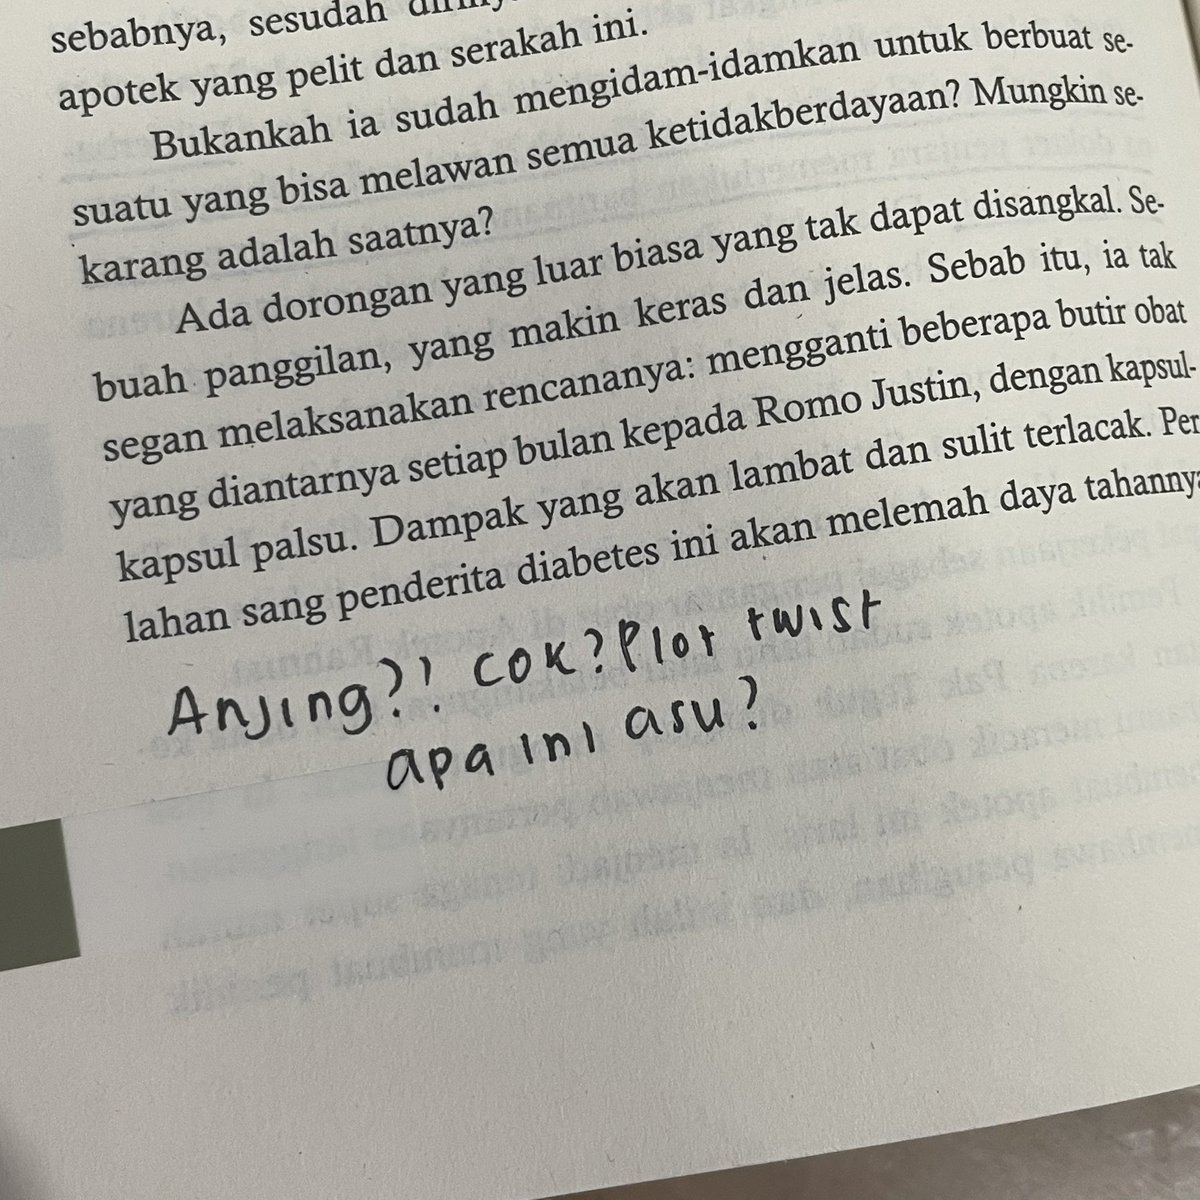 sebabnya, sesudah
apotek yang pelit dan serakah ini.
Bukankah ia sudah mengidam-idamkan untuk berbuat se-
suatu yang bisa melawan semua ketidakberdayaan? Mungkin se-
karang adalah saatnya?
Ada dorongan yang luar biasa yang tak dapat disangkal. Se-
buah panggilan, yang makin keras dan jelas. Sebab itu, ia tak
segan melaksanakan rencananya: mengganti beberapa butir obat
yang diantarnya setiap bulan kepada Romo Justin, dengan kapsul-
kapsul palsu. Dampak yang akan lambat dan sulit terlacak. Per
lahan sang penderita diabetes ini akan melemah daya tahannya
Anjing?! cok? Plot twist
apa ini asu?